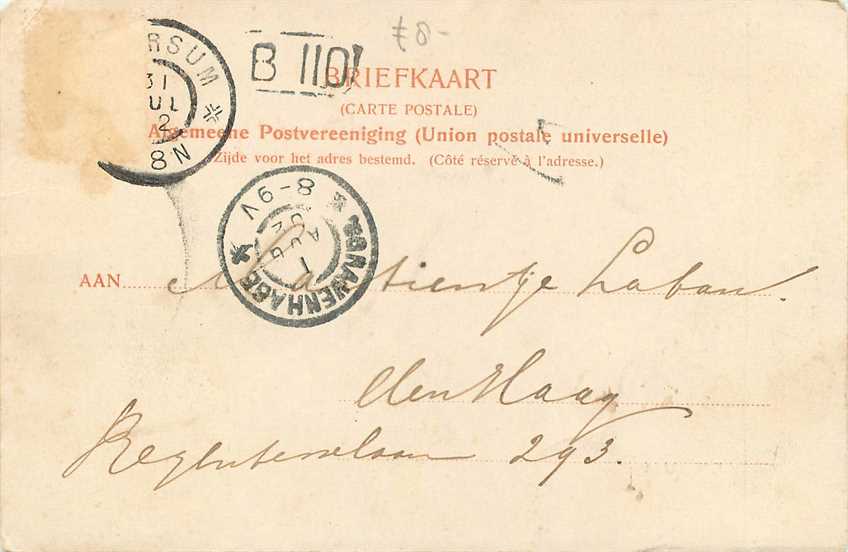 ƒ8-
RSUM
31
UL
2
8N
B 110
BRIEFKAART
(CARTE POSTALE)
Algemeene Postvereeniging (Union postale universelle)
Zijde voor het adres bestemd. (Côté réservé à l'adresse.)
8-9V
1
AUG
'SGRAVENHAGE
AAN
tientje Laban.
den Haag
Regentesselaan 293.